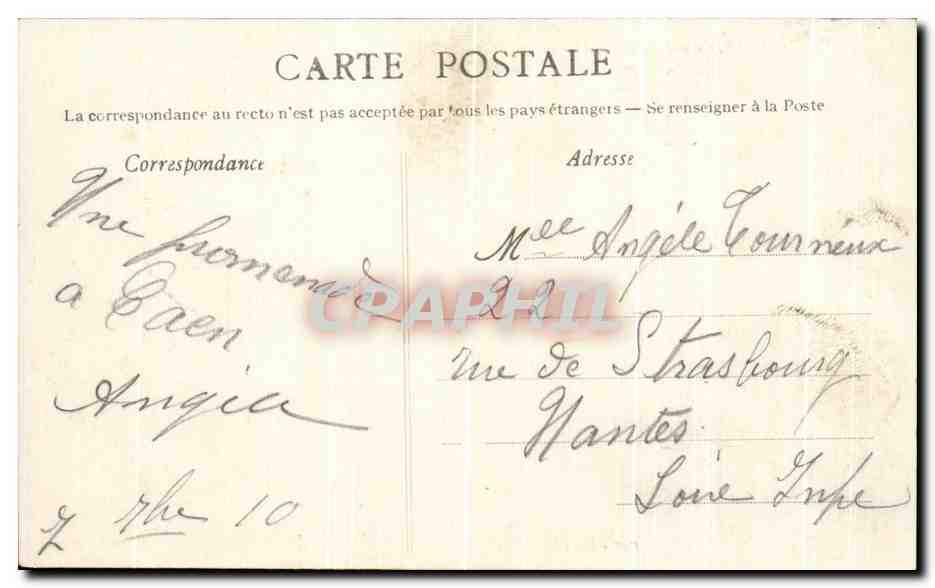 CARTE POSTALE
La correspondance au recto n'est pas acceptée par tous les pays étrangers — Se renseigner à la Poste
Correspondance
Une promenade
a Caen
Angèle
7 10
Adresse
Mlle Angèle Tourneux
22
rue de Strasbourg
Nantes
Loire Infre
CPAPHIL